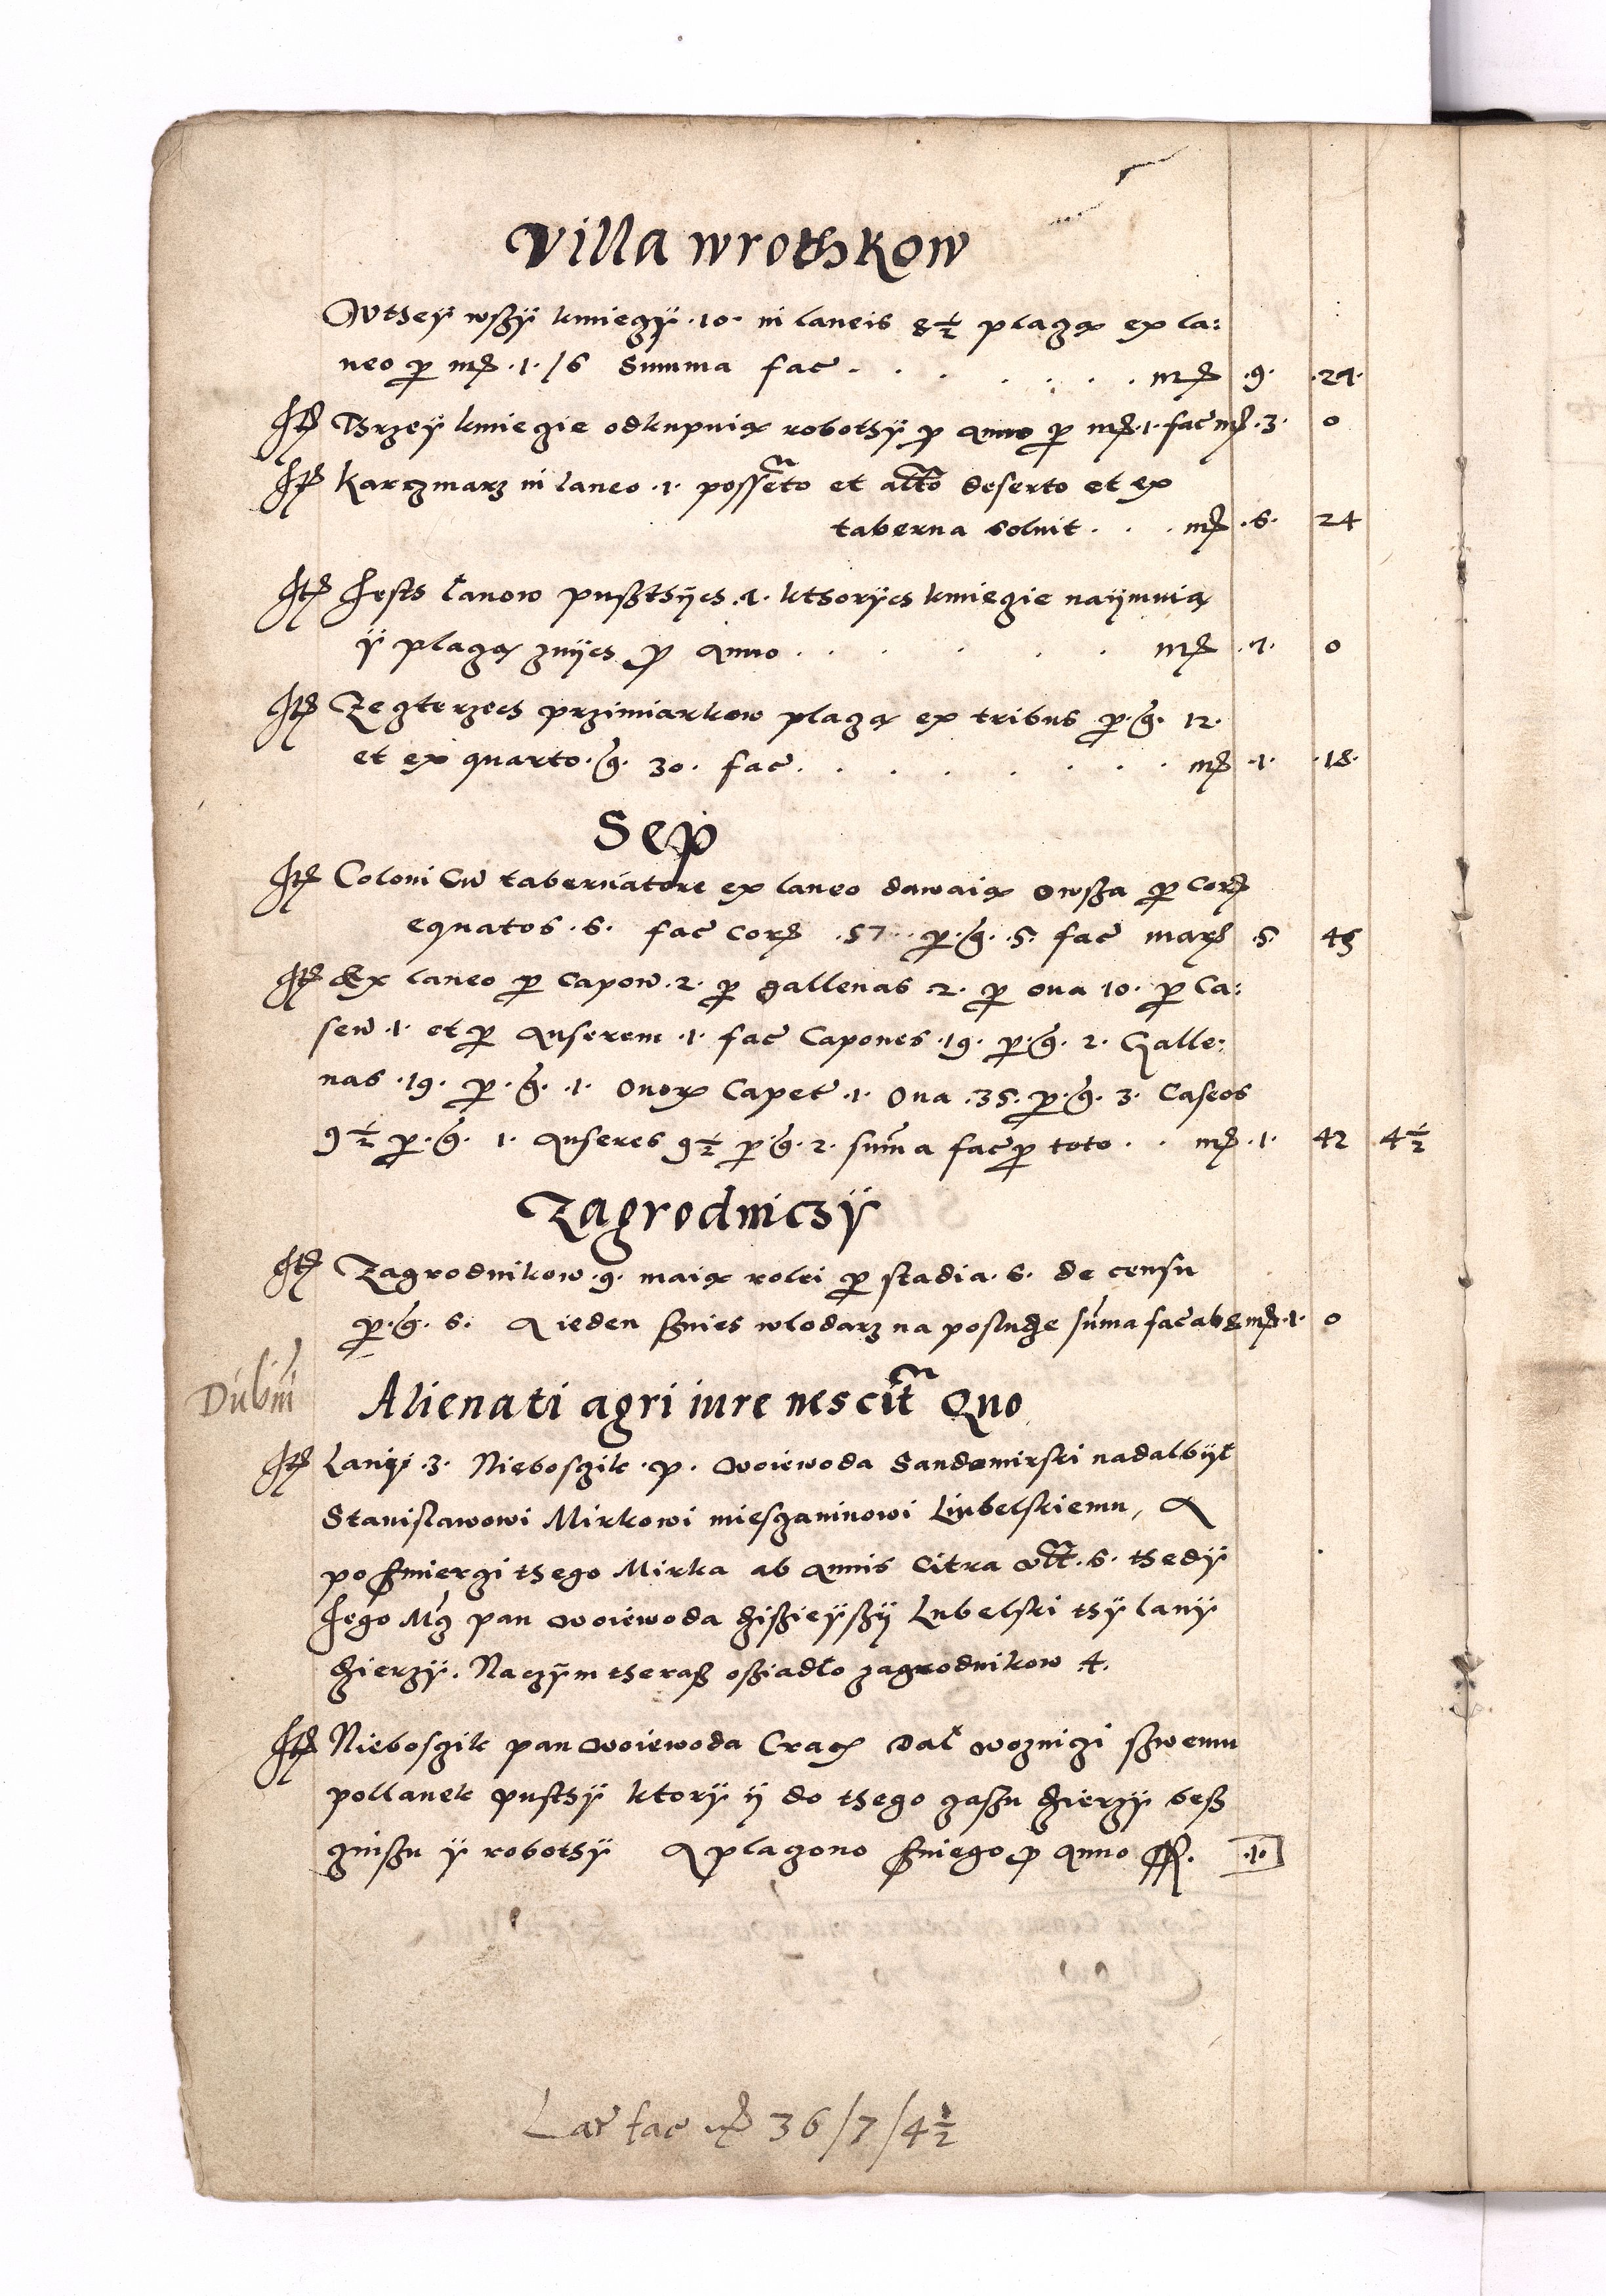 Villa wrothkow
W they wszÿ kmieczÿ .10. in laneis 8½ placzą ex la:
neo p mr .1./6 Summa fac . . . . . . mr .9. .27.
It Trzeÿ kmiecie odkupuią robothÿ p Anno p mr .1. fac mr .3. 0
It Karczmarz in laneo .1. possesato et alto deserto et ex
taberna soluit . . . mr .6. 24
It Jesth łanow pusthÿch .7. kthorÿch kmiecie naÿmuią
ÿ placzą znÿch p Anno . . . . . mr .7. 0
It Ze czterzech przimiarkow placzą ex tribus p .g. 12.
et ex quarto .g. 30. fac . . . . . . . mr .1. .18.
Sep
It Coloni Cum tabernatore ex laneo dawaią owsza p Cor
equatos .6. fac Cor .57. p .g. 5. fac marc .5. 45
It Ex laneo p Capon .2. p gallenas 2. p oua 10. p Ca:
seum .1. et p Anserem .1. fac Capones .19. p .g. 2. Galle:
nas .19. p .g. .1. Ouorx Capet .1. Oua .35. p .g. 3. Caseos
9½ p .g. 1. Anseres 9½ p .g. 2. suma fac p toto . . mr .1. 42 4½
Zagrodniczÿ
It Zagrodnikow .9. maią rolei p stadia .6. de censu
p .g. 6. A ieden sznich wlodarz na posludze suma fac ab 8 mr .1. 0
Dubium
Alienati agri iure nescitr Quo
It Lanÿ .3. Nieboszik .p. woiewoda Sandomirski nadalbÿł
Stanislawowi Mirkowi miesczaninowi Lubelskiemu, A
po szmierczi thego Mirka ab Annis Citra vlt .6. thedÿ
Jego Mcz pan woiewoda dzisieÿszÿ Lubelski thÿ lanÿ
dzierzÿ. Na czÿm theraz osziadło zagrodnikow .4.
It Nieboszik pan woiewoda Crac dał woznizi szwemu
pollanek pusthÿ ktorÿ ÿ do thego czaszu dzierzÿ besz
czinszu ÿ robothÿ A placzono szniego p Anno fl. .1.
Lat fac mr 36/7/4½